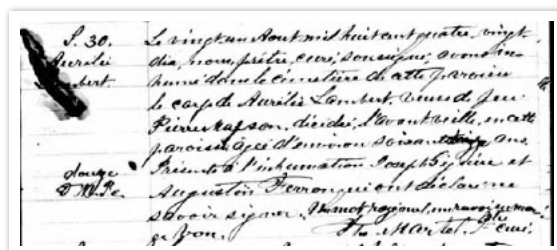 S. 30.
Aurélie
Lambert.
Le vingt un Aout mil huit cent quatre vingt
dix, nous, prêtre, curé, soussigné, avons in-
humé dans le cimetière de cette paroisse
le corps de Aurélie Lambert, veuve de feu
Pierre décédée l'avant veille, en cette
paroisse, agée d'environ soixante ans.
douze
Présents à l'inhumation Joseph et
Augustin qui ont déclaré ne
savoir signer. Un mot rayé nul, un renvoi en mar-
ge bon. Martel, Ptre curé.